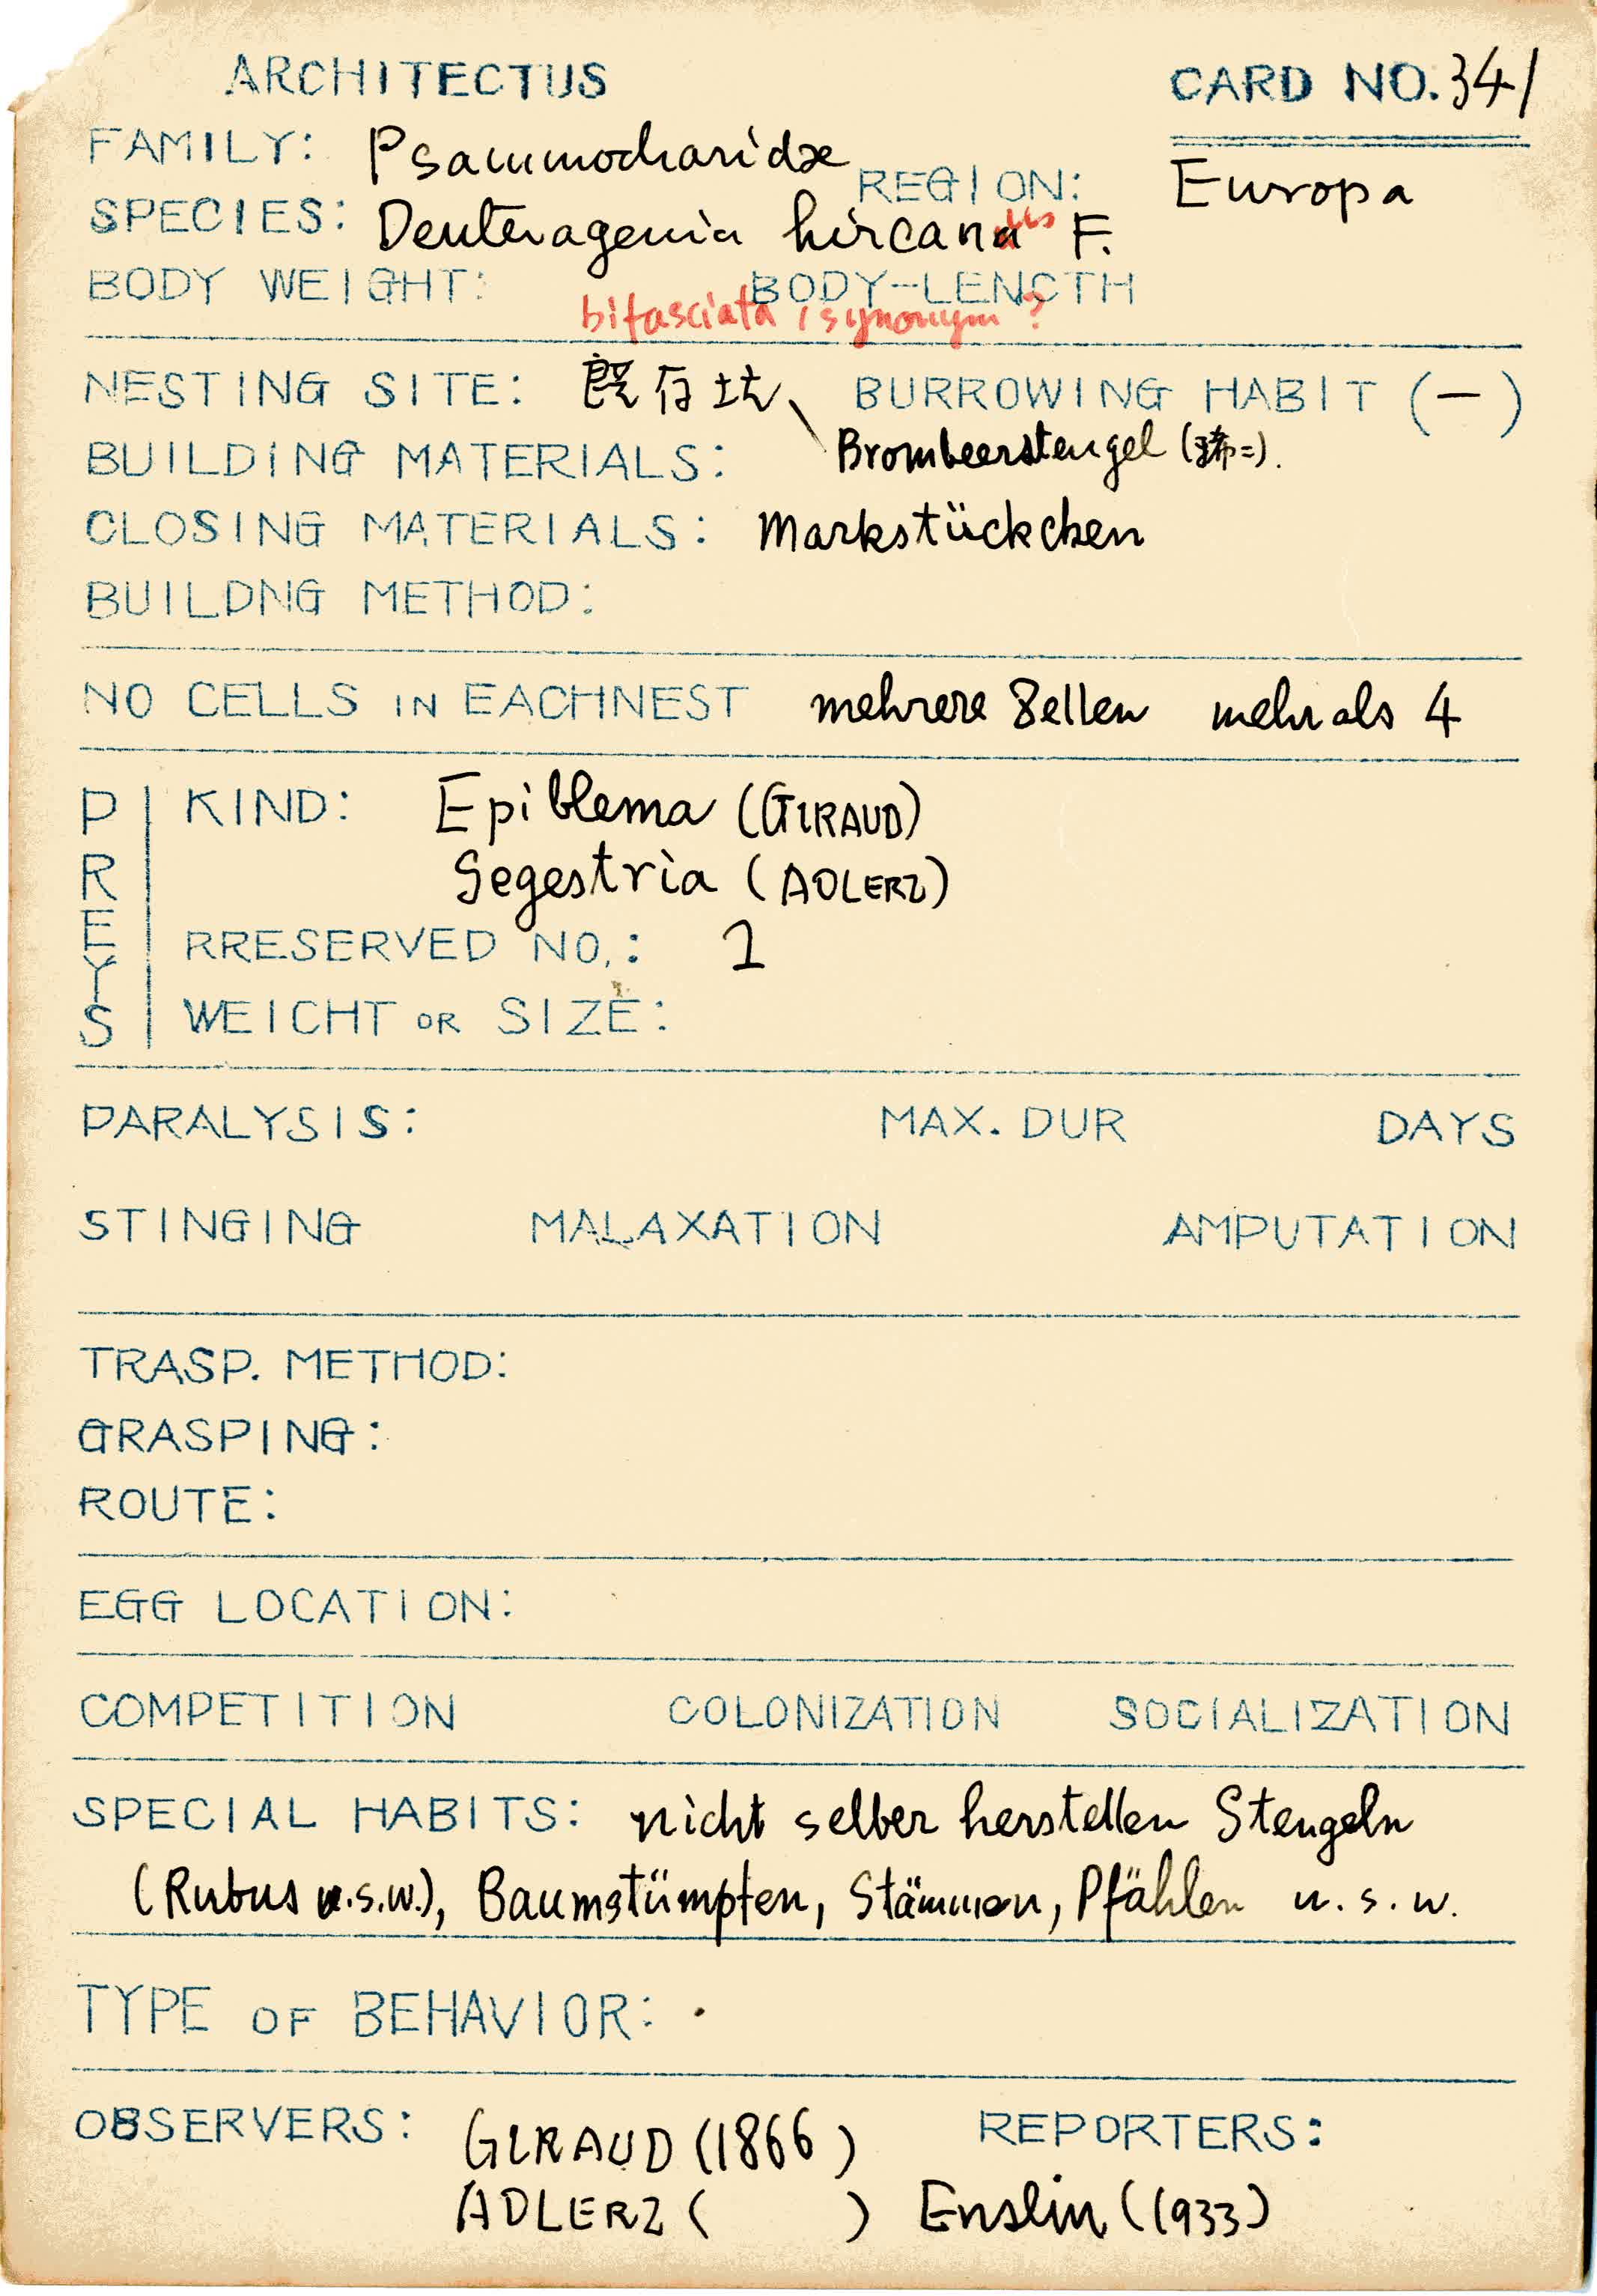 ARCHITECTUS CARD NO. 341
FAMILY: Psammocharidæ REGION: Europa
SPECIES: Deuteragenia hircana us F.
BODY WEIGHT: BODY-LENGTH
bifasciata, synonym?
NESTING SITE: 既存坑、 BURROWING HABIT (-)
BUILDING MATERIALS: Brombeerstengel (稀=).
CLOSING MATERIALS: Markstückchen
BUILDNG METHOD:
NO CELLS IN EACHNEST mehrere Zellen mehr als 4
PREYS
KIND: Epiblema (GIRAUD)
Segestria (ADLERZ)
RRESERVED NO.: 1
WEICHT OR SIZE:
PARALYSIS: MAX. DUR DAYS
STINGING MALAXATION AMPUTATION
TRASP. METHOD:
GRASPING:
ROUTE:
EGG LOCATION:
COMPETITION COLONIZATION SOCIALIZATION
SPECIAL HABITS: nicht selber herstellen Stengeln
(Rubus u.s.w.), Baumstümpfen, Stämmen, Pfählen u.s.w.
TYPE OF BEHAVIOR:
OBSERVERS: GIRAUD (1866) REPORTERS:
ADLERZ ( ) Enslin (1933)